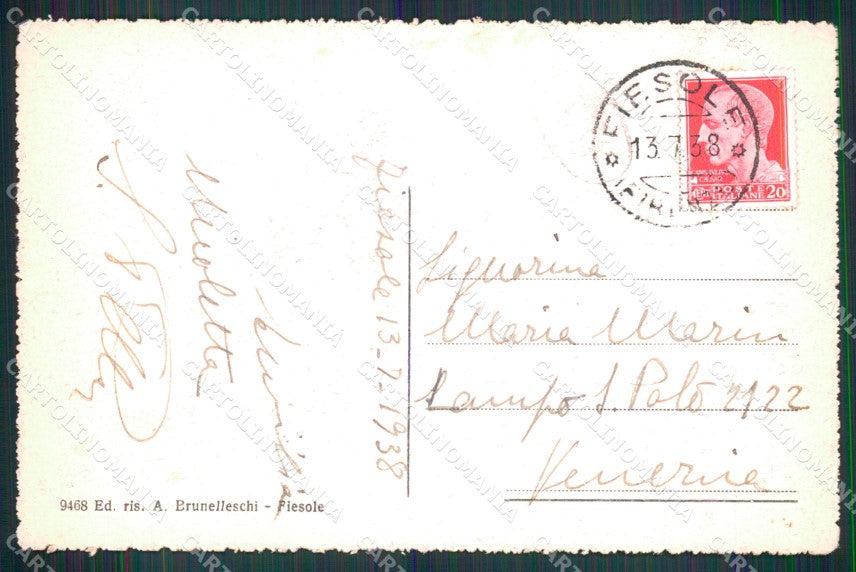 FIESOLE
13.7.38
POSTE ITALIANE 20
Fiesole 13-7-1938
Nicoletta
Signorina
Maria Marin
Campo S. Polo 2122
Venezia
9468 Ed. ris. A. Brunelleschi - Fiesole
CARTOLINOMANIA